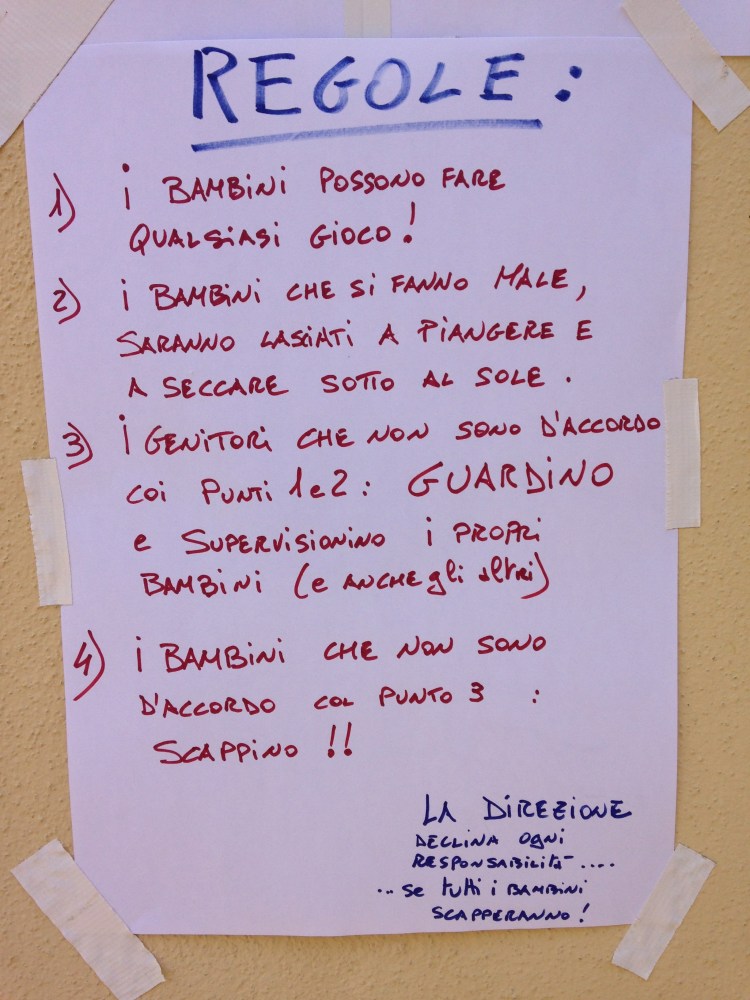 REGOLE:
1) i BAMBiNi POSSONO FARE
QUALSiASi GiOCO!
2) i BAMBiNi CHE Si FANNO MALE,
SARANNO LASCIATi A PiANGERE E
A SECCARE SOTTO AL SOLE.
3) i GENiTORi CHE NON SONO D'ACCORDO
COi PUNTi 1 e 2: GUARDiNO
e SUPERViSiONiNO i PROPRi
BAMBiNi (e ANCHE gli altri)
4) i BAMBiNi CHE NON SONO
D'ACCORDO COL PUNTO 3 :
SCAPPiNO !!
LA DiREZiONE
DECLiNA OgNi
RESPONSABiLità ....
...se tutti i BAMBiNi
SCAPPERANNO!